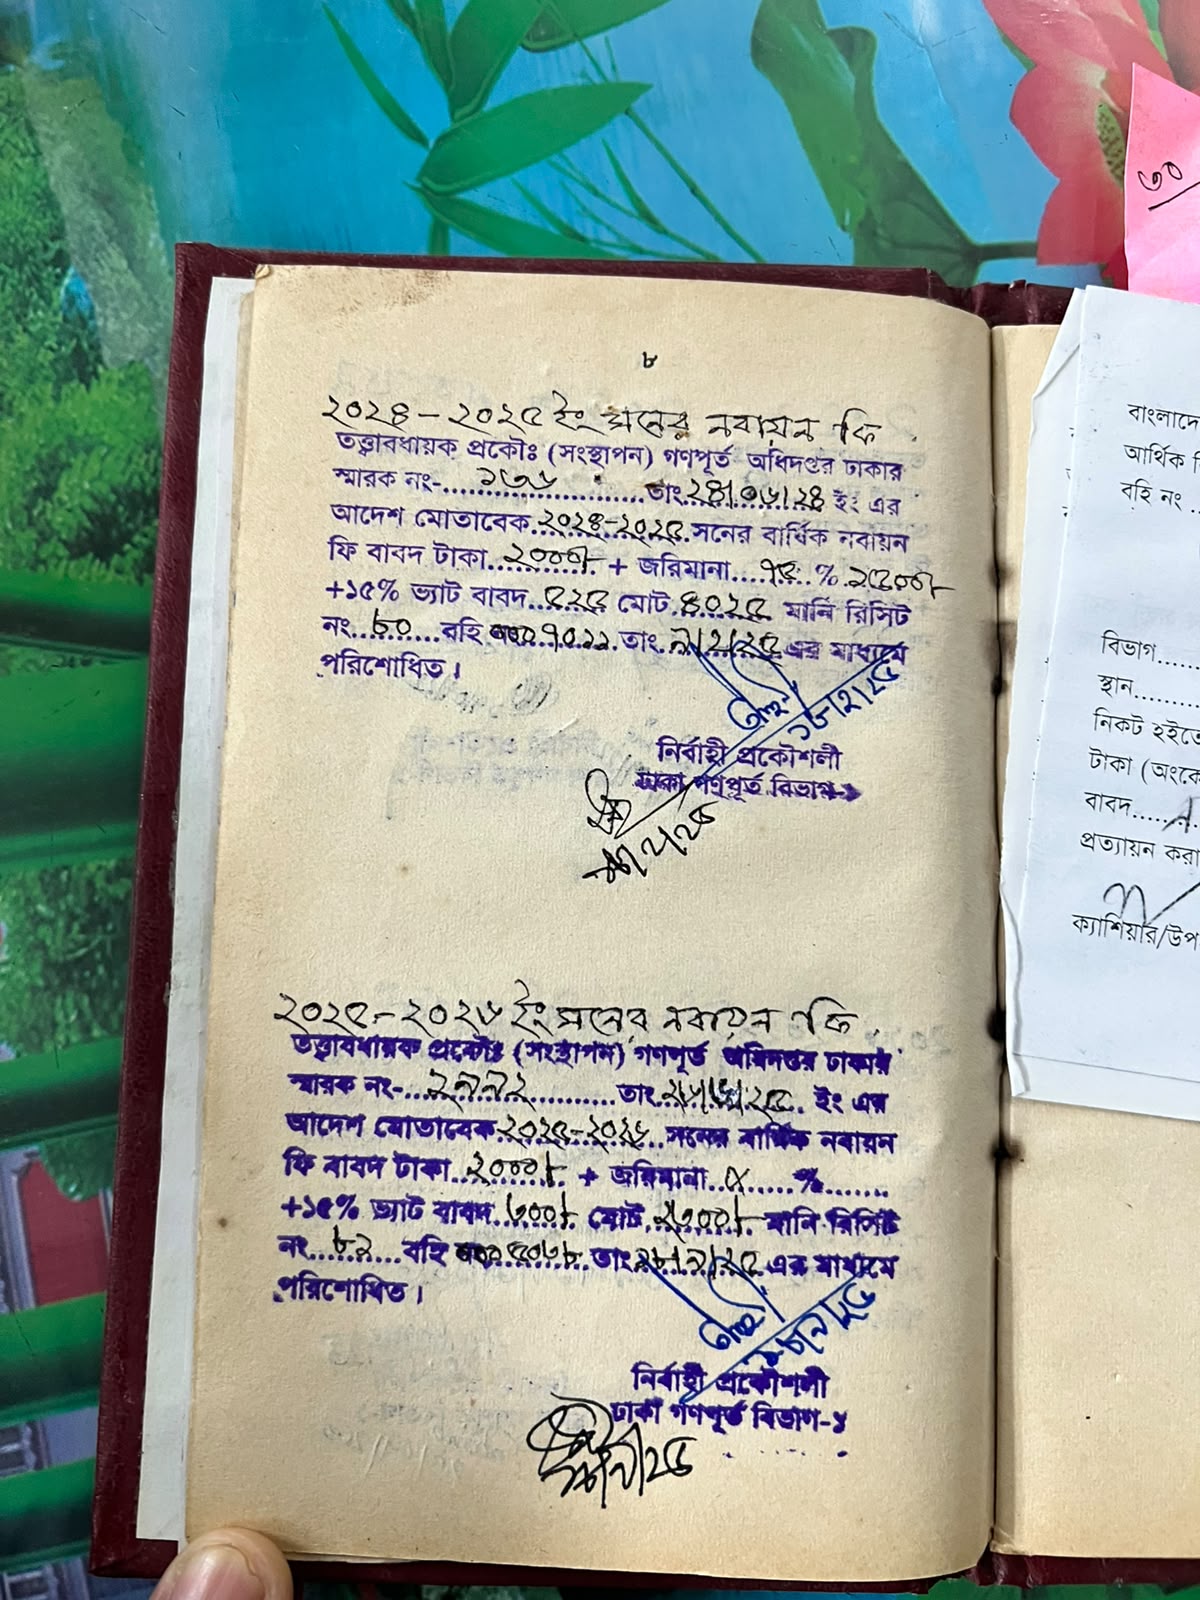 ৮
২০২৪-২০২৫ ইং সনের নবায়ন ফি
তত্ত্বাবধায়ক প্রকৌঃ (সংস্থাপন) গণপূর্ত অধিদপ্তর ঢাকার
স্মারক নং-.............তাং ২৪/০৬/২৪ ইং এর
আদেশ মোতাবেক ২০২৪-২০২৫ সনের বার্ষিক নবায়ন
ফি বাবদ টাকা ২০০০/- + জরিমানা ৭৫ % ১৫০০/-
+১৫% ভ্যাট বাবদ ৫২৫ মোট ৪০২৫ মানি রিসিট
নং ৮০ বহি নং ০০০৭০১১ তাং ৯/২/২৫ এর মাধ্যমে
পরিশোধিত।
নির্বাহী প্রকৌশলী
ঢাকা গণপূর্ত বিভাগ-১
২০২৫-২০২৬ ইং সনের নবায়ন ফি
তত্ত্বাবধায়ক প্রকৌঃ (সংস্থাপন) গণপূর্ত অধিদপ্তর ঢাকার
স্মারক নং-.............তাং ইং এর
আদেশ মোতাবেক ২০২৫-২০২৬ সনের বার্ষিক নবায়ন
ফি বাবদ টাকা ২০০০/- + জরিমানা %
+১৫% ভ্যাট বাবদ ৩০০/- মোট ২৩০০/- মানি রিসিট
নং ৮২ বহি তাং এর মাধ্যমে
পরিশোধিত।
নির্বাহী প্রকৌশলী
ঢাকা গণপূর্ত বিভাগ-১
৩০
বাংলাদে
আর্থিক
বহি নং
বিভাগ
স্থান
নিকট হইতে
টাকা (অংকে
বাবদ
প্রত্যায়ন করা
ক্যাশিয়ার/উপ